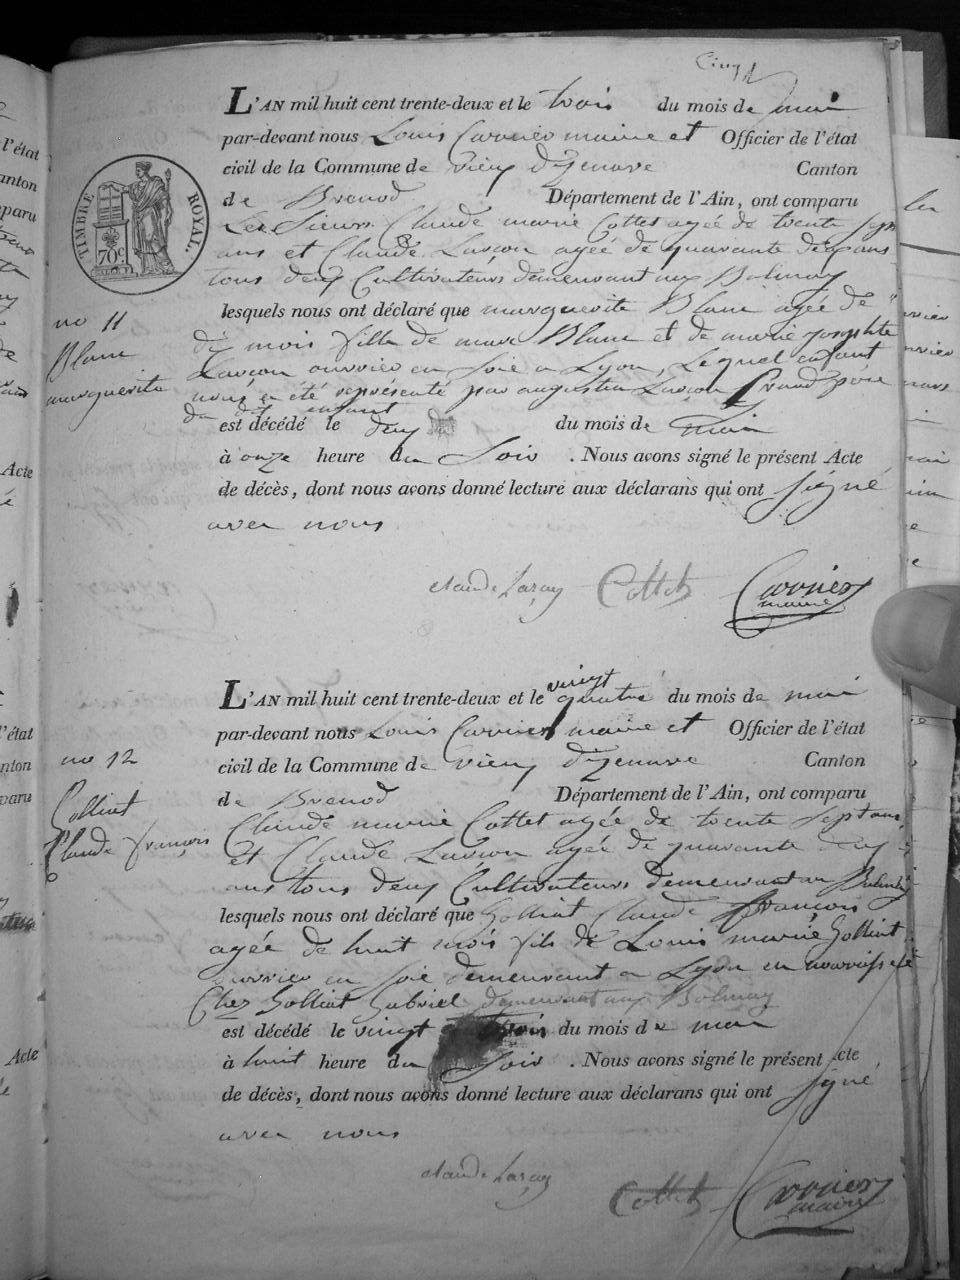 Cinq
TIMBRE ROYAL.
70c
L'AN mil huit cent trente-deux et le trois du mois de mai
par-devant nous Louis Carrier maire et Officier de l'état
civil de la Commune de vieux d'izenave Canton
de Brenod Département de l'Ain, ont comparu
Les Sieurs Claude marie Cottet agée de trente Sept
ans et Claude Laraçon agée de quarante deux ans
tous deux Cultivateurs demeurant aux Balmay
lesquels nous ont déclaré que marguerite Blanc agée de
dix mois fille de marc Blanc et de marie josephte
ouvrier en Soie a Lyon, Lequel enfant
nous a été représenté par augustin grand père
du dit enfant
est décédé le deux du mois de mai
à onze heure du Soir . Nous avons signé le présent Acte
de décès, dont nous avons donné lecture aux déclarans qui ont signé
avec nous
no 11
Blanc
marguerite
claude Cottet Carrier
maire
L'AN mil huit cent trente-deux et le vingt quatre du mois de mai
par-devant nous Louis Carrier maire et Officier de l'état
civil de la Commune de vieux d'izenave Canton
de Brenod Département de l'Ain, ont comparu
Claude marie Cottet agée de trente Sept ans,
et Claude agée de quarante deux
ans tous deux Cultivateurs demeurant au Balmay
lesquels nous ont déclaré que Golliat Claude françois
agée de huit mois fils de Louis marie Golliat
ouvrier en Soie demeurant a Lyon en nourrisse
Chez Golliat Gabriel demeurant aux Balmay
est décédé le vingt trois du mois de mai
à huit heure du Soir . Nous avons signé le présent Acte
de décès, dont nous avons donné lecture aux déclarans qui ont signé
avec nous
no 12
Golliat
Claude françois
claude Cottet Carrier
maire